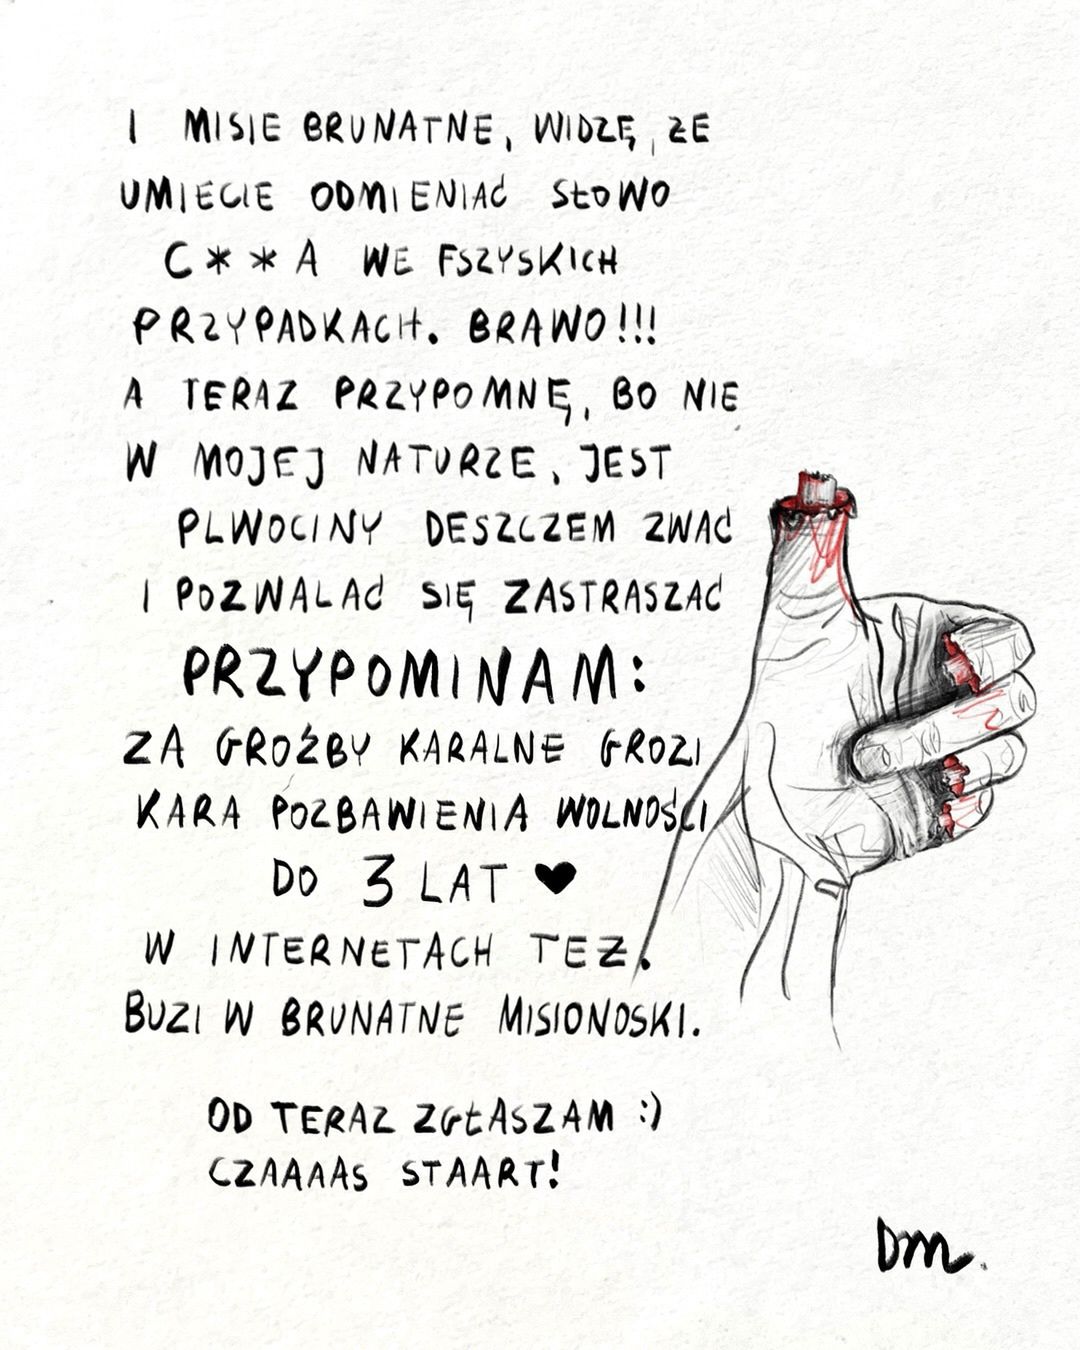 I MISIE BRUNATNE, WIDZĘ, ŻE
UMIECIE ODMIENIAĆ SŁOWO
C**A WE FSZYSKICH
PRZYPADKACH. BRAWO!!!
A TERAZ PRZYPOMNĘ, BO NIE
W MOJEJ NATURZE, JEST
PLWOCINY DESZCZEM ZWAĆ
I POZWALAĆ SIĘ ZASTRASZAĆ
PRZYPOMINAM:
ZA GROŹBY KARALNE GROZI
KARA POZBAWIENIA WOLNOŚCI
DO 3 LAT ♥
W INTERNETACH TEŻ.
BUZI W BRUNATNE MISIONOSKI.
OD TERAZ ZGŁASZAM :)
CZAAAAS STAART!
DM.